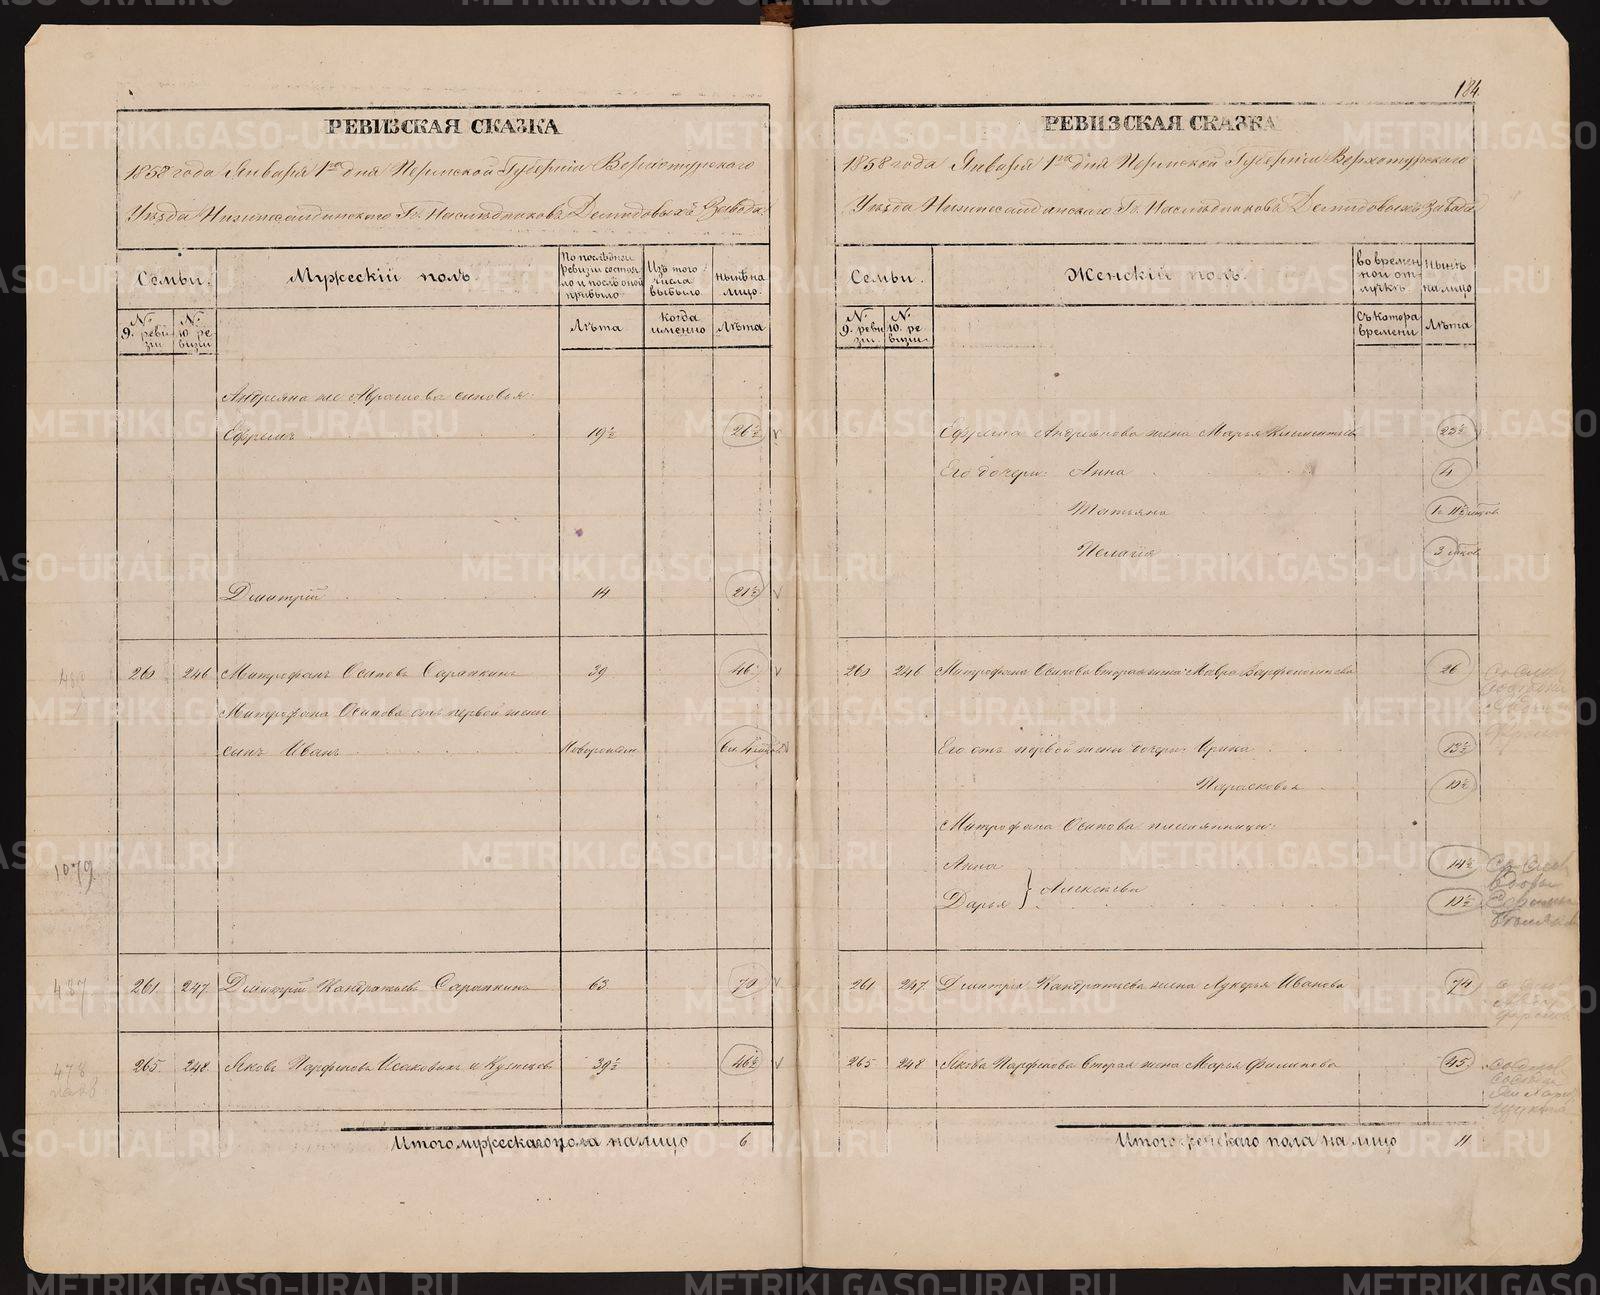 184.
РЕВИЗСКАЯ СКАЗКА
1858 года Января 1го дня Пермской Губерніи Верхотурскаго
Уѣзда Нижнесалдинскаго Гг. Наслѣдниковъ Демидовыхъ Завода
Семьи.
Мужескій полъ.
По послѣдней ревизіи состояло и послѣ оной прибыло
Изъ того числа выбыло
нынѣ на лицо.
№ 9. ревизіи
№ 10. ревизіи
Лѣта
когда именно
Лѣта
Андреяна же Абрамова сыновья:
Ефремъ 19½ 26½
Дмитрій 14 21½
260 246 Митрофанъ Осиповъ Сарапкинъ 39 46
Митрофана Осипова отъ первой жены
сынъ Иванъ Новорожден
1079
487
261 247 Дмитрій Кондратьевъ Сарапкинъ 63 70
478
265 248 Яковъ Парфеновъ Исаковихъ и Кузнецовъ 39½ 46½
Итого мужескаго пола на лицо 6
РЕВИЗСКАЯ СКАЗКА
1858 года Января 1го дня Пермской Губерніи Верхотурскаго
Уѣзда Нижнесалдинскаго Гг. Наслѣдниковъ Демидовыхъ Завода
Семьи.
Женскій полъ.
во временной отлучкѣ
нынѣ на лицо
№ 9. ревизіи
№ 10. ревизіи
Съ котора времени
Лѣта
Ефрема Андреянова жена Марья Климентьева 22½
Его дочери: Анна 4
Татьяна
Пелагія 3
260 246 Митрофана Осипова вторая жена Мавра Варфоломеева 26
Его отъ первой жены дочери: Ирина 13½
Парасковья 10½
Митрофана Осипова племянницы:
Анна 14½
Дарья } Алексѣева 10½
261 247 Дмитрія Кондратьева жена Лукерья Иванова 74
265 248 Якова Парфенова вторая жена Марья Филипова 45
Итого женскаго пола на лицо 11
METRIKI.GASO-URAL.RU